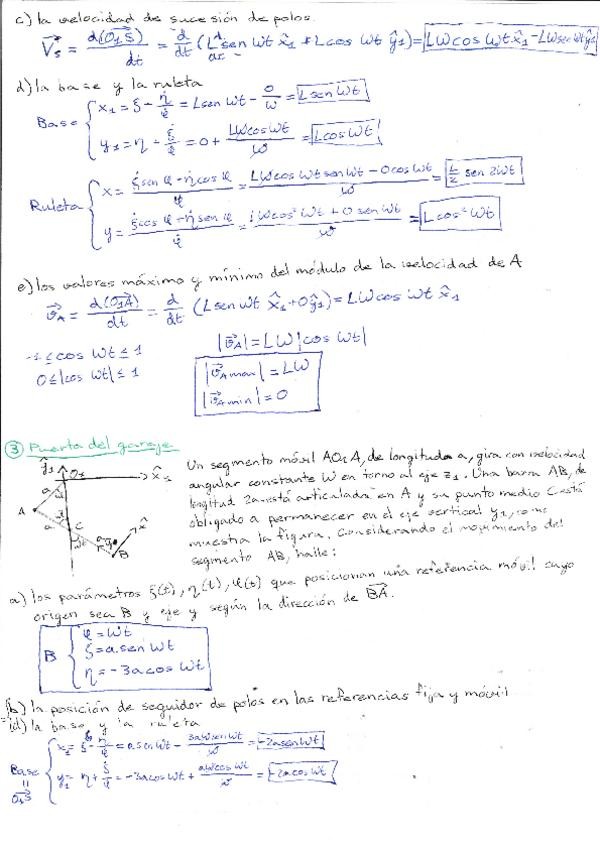 c) la velocidad de sucesión de polos.
V⃗s = d(O₁S)/dt = d/dt (L sen ωt x̂₁ + L cos ωt ŷ₁) = Lω cos ωt x̂₁ - Lω sen ωt ŷ₁
d) la base y la ruleta
Base { x₁ = ξ - η̇/φ̇ = L sen ωt - 0/ω = L sen ωt
y₁ = η + ξ̇/φ̇ = 0 + Lω cos ωt/ω = L cos ωt
Ruleta { x = (ξ̇ sen φ - η̇ cos φ)/φ̇ = (Lω cos ωt sen ωt - 0 cos ωt)/ω = L/2 sen 2ωt
y = (ξ̇ cos φ + η̇ sen φ)/φ̇ = (Lω cos² ωt + 0 sen ωt)/ω = L cos² ωt
e) los valores máximo y mínimo del módulo de la velocidad de A
v⃗A = d(O₁A)/dt = d/dt (L sen ωt x̂₁ + 0 ŷ₁) = Lω cos ωt x̂₁
-1 ≤ cos ωt ≤ 1
|v⃗A| = Lω |cos ωt|
0 ≤ |cos ωt| ≤ 1
|v⃗A max| = Lω
|v⃗A min| = 0
③ Puerta del garaje
y₁ O₁ x̂₁
a
A
a C x̂
B
Un segmento móvil AO₁A, de longitud a, gira con velocidad
angular constante ω en torno al eje z₁. Una barra AB, de
longitud 2a está articulada en A y su punto medio C está
obligado a permanecer en el eje vertical y₁, como
muestra la figura. Considerando el movimiento del
segmento AB, halle:
a) los parámetros ξ(t), η(t), φ(t) que posicionan una referencia móvil cuyo
origen sea B y eje y según la dirección de BA.
B { φ = ωt
ξ = a sen ωt
η = -3a cos ωt
(b) la posición de seguidor de polos en las referencias fija y móvil
(d) la base y la ruleta
Base = O₁S { x₁ = ξ - η̇/φ̇ = a sen ωt - 3aω sen ωt/ω = -2a sen ωt
y₁ = η + ξ̇/φ̇ = -3a cos ωt + aω cos ωt/ω = -2a cos ωt